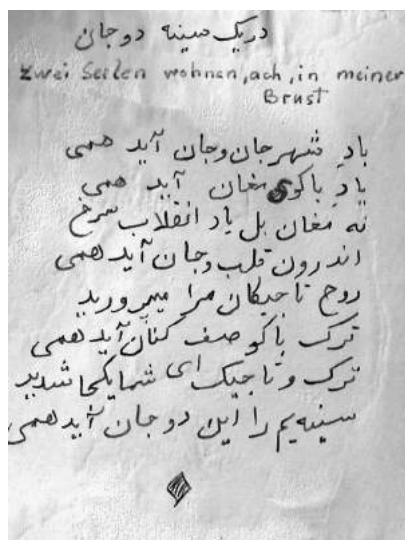 در یک سینه دو جان
zwei Seelen wohnen, ach, in meiner
Brust
باد شهر جان و جان آید همی
یاد باکوی مغان آید همی
نه مغان بل یاد انقلاب سرخ
اندرون قلب و جان آید همی
روح تاجیکان مرا میپرورید
ترک باکو صف کنان آید همی
ترک و تاجیک ای شما یکجا شدید
سینه‌یم را این دو جان آید همی